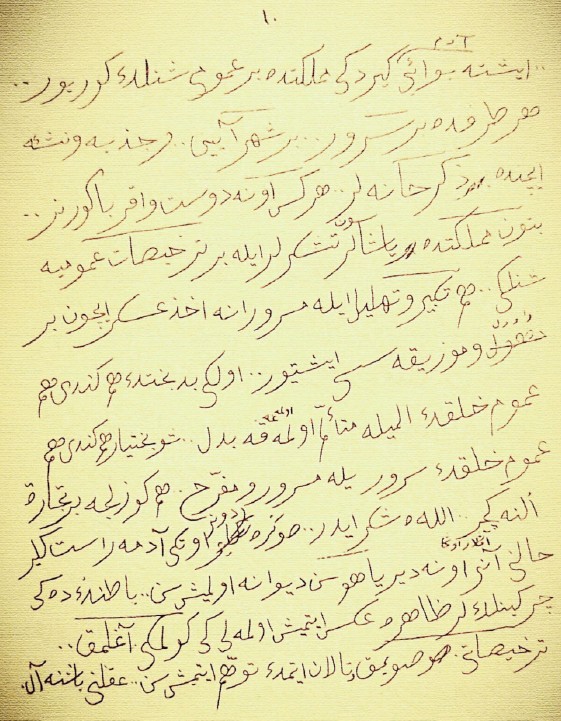 ١٠
آدم
.. ایشته بو آنی گیردیکی مملکتده بر عمومی شنلك گورییور ..
هر طرفده بر سرور .. بر شهر آیین .. بر جذبه و نشئه
ایچنده ذکرخانه لر .. هرکس اونه دوست و اقربا گورنیر ..
بتون مملکتده یاشاسون تشکرلر ایله بر ترخیصات عمومیه
شنلکی .. هم تکبیر و تهلیل ایله مسرورانه اخذ عسکر ایچون بر
داوول و موزیقه سسی ایشتیور .. اولکی بدبختك هم کندی هم
عموم خلقك المیله متألم اولمه سنه بدل .. شو بختیار هم کندی هم
عموم خلقك سروریله مسرور و مفرّح .. هم گوزلجه بر تجارة
ألنه گچر .. اللهه شکر ایدر .. صوکره دونر اوتکی آدمه راست گلیر
حالنی آکلار اونه دیر یاهو سن دیوانه اولمش سن .. باطنکده کی
چرکینلکلر ظاهرکه عکس ایتمش اولمه لی کی گولمکی آغلامق ..
ترخیصاتی صویمق و تالان ایتمك توهّم ایتمش سن .. عقلنی باشنه آل .